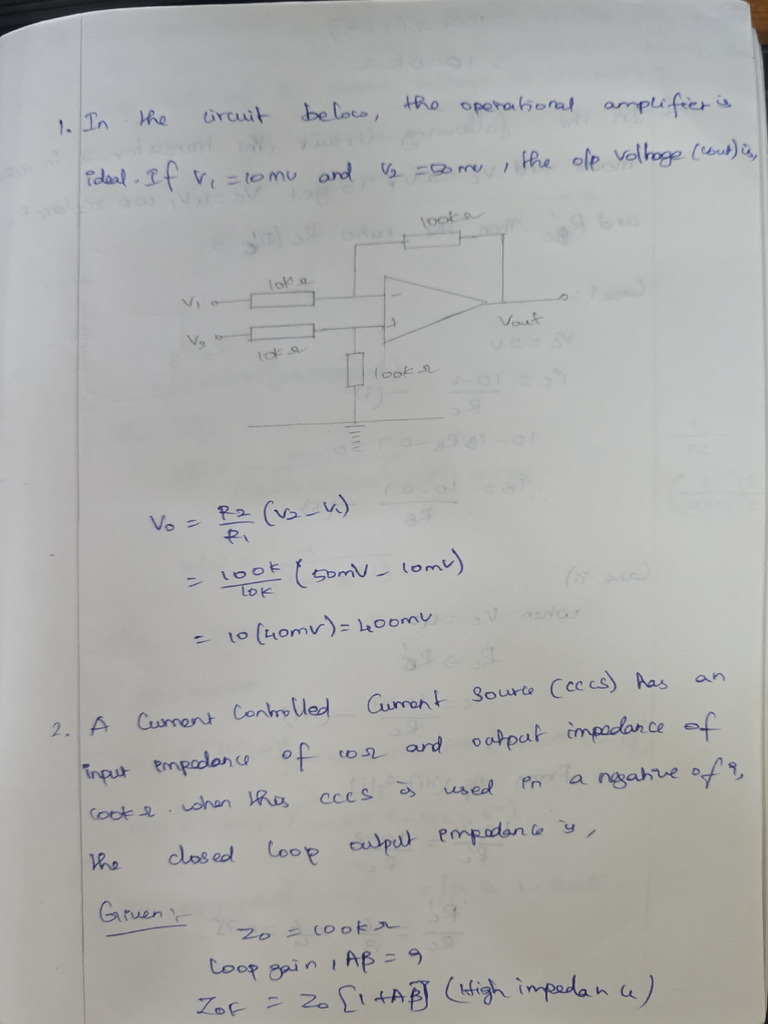 1. In the circuit below, the operational amplifier is
ideal. If V1 = 10mv and V2 = 50mv, the o/p voltage (vout) is,
100kΩ
10kΩ
V1
-
V2
+
Vout
10kΩ
100kΩ
Vo = R2/R1 (V2 - V1)
= 100k/10k (50mV - 10mV)
= 10 (40mV) = 400mV
2. A Current Controlled Current Source (CCCS) has an
input impedance of 10Ω and output impedance of
100kΩ. when this CCCS is used in a negative of 9,
the closed loop output impedance is,
Given :-
Zo = 100kΩ
Loop gain, Aβ = 9
ZOF = Zo [1 + Aβ] (High impedance)